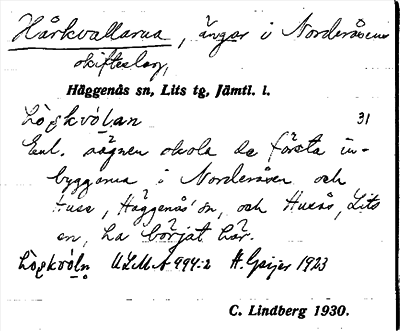 Hårkvallarna, ängar i Norderåsens
skifteslag,
Häggenås sn, Lits tg, Jämtl. l.
31
Enl. sägnen skola de första in-
byggarna i Norderåsen och
Huse, Häggenås sn, och Husås, Lits
sn, ha börjat här.
ULMA 994:2 H. Geijer 1923
C. Lindberg 1930.